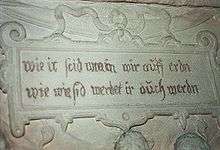 wie ir seid waren wir auff erdn
wie wir sind werdet ir auch werdn